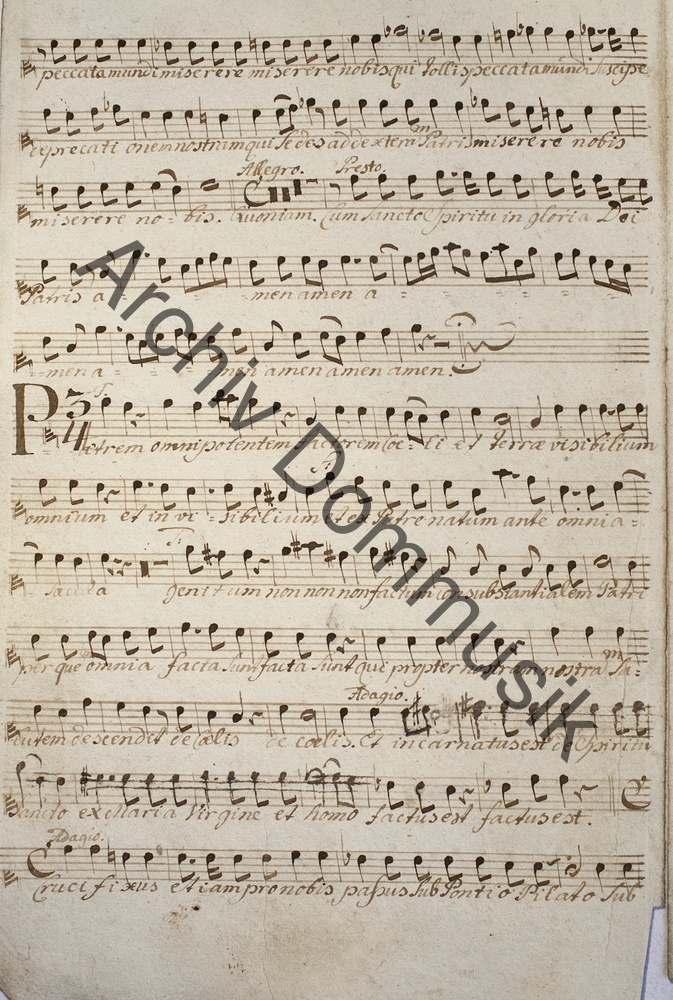 peccata mundi miserere miserere nobis qui tollis peccata mundi Suscipe
deprecationem nostram qui Sedes ad dexteram Patris miserere nobis
Allegro. Presto.
miserere no- bis. Quoniam. Cum Sancto Spiritu in gloria Dei
Patris a- - - men amen a - - - -
- men a - - - - men amen amen amen.
T.
3/4
Patrem omnipotentem factorem Coe- li et terræ visibilium
omnium et in vi- sibilium et ex Patre natum ante omnia-
T.
Sæcula genitum non non non factum Consubstantialem Patri
per que omnia facta Sunt facta Sunt qui propter nostram nostram Sa-
Adagio.
lutem descendit de Cœlis de cœlis. Et incarnatus est de Spiritu
Sancto ex Maria Virgine et homo factus est factus est.
Adagio.
Crucifixus etiam pro nobis passus Sub Pontio Pilato Sub
Archiv Dommusik